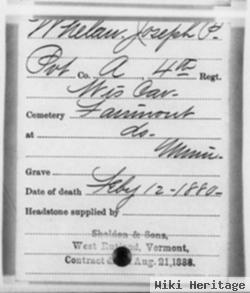 Whelan, Joseph P.
Pvt Co. A, 4th Regt.
Wis Cav.
Cemetery Fairmont
at do.
Minn.
Grave
Date of death Feby 12-1880-
Headstone supplied by
Sheldon & Sons,
West Rutland, Vermont,
Contract d Aug. 21, 1888.
Wiki Heritage